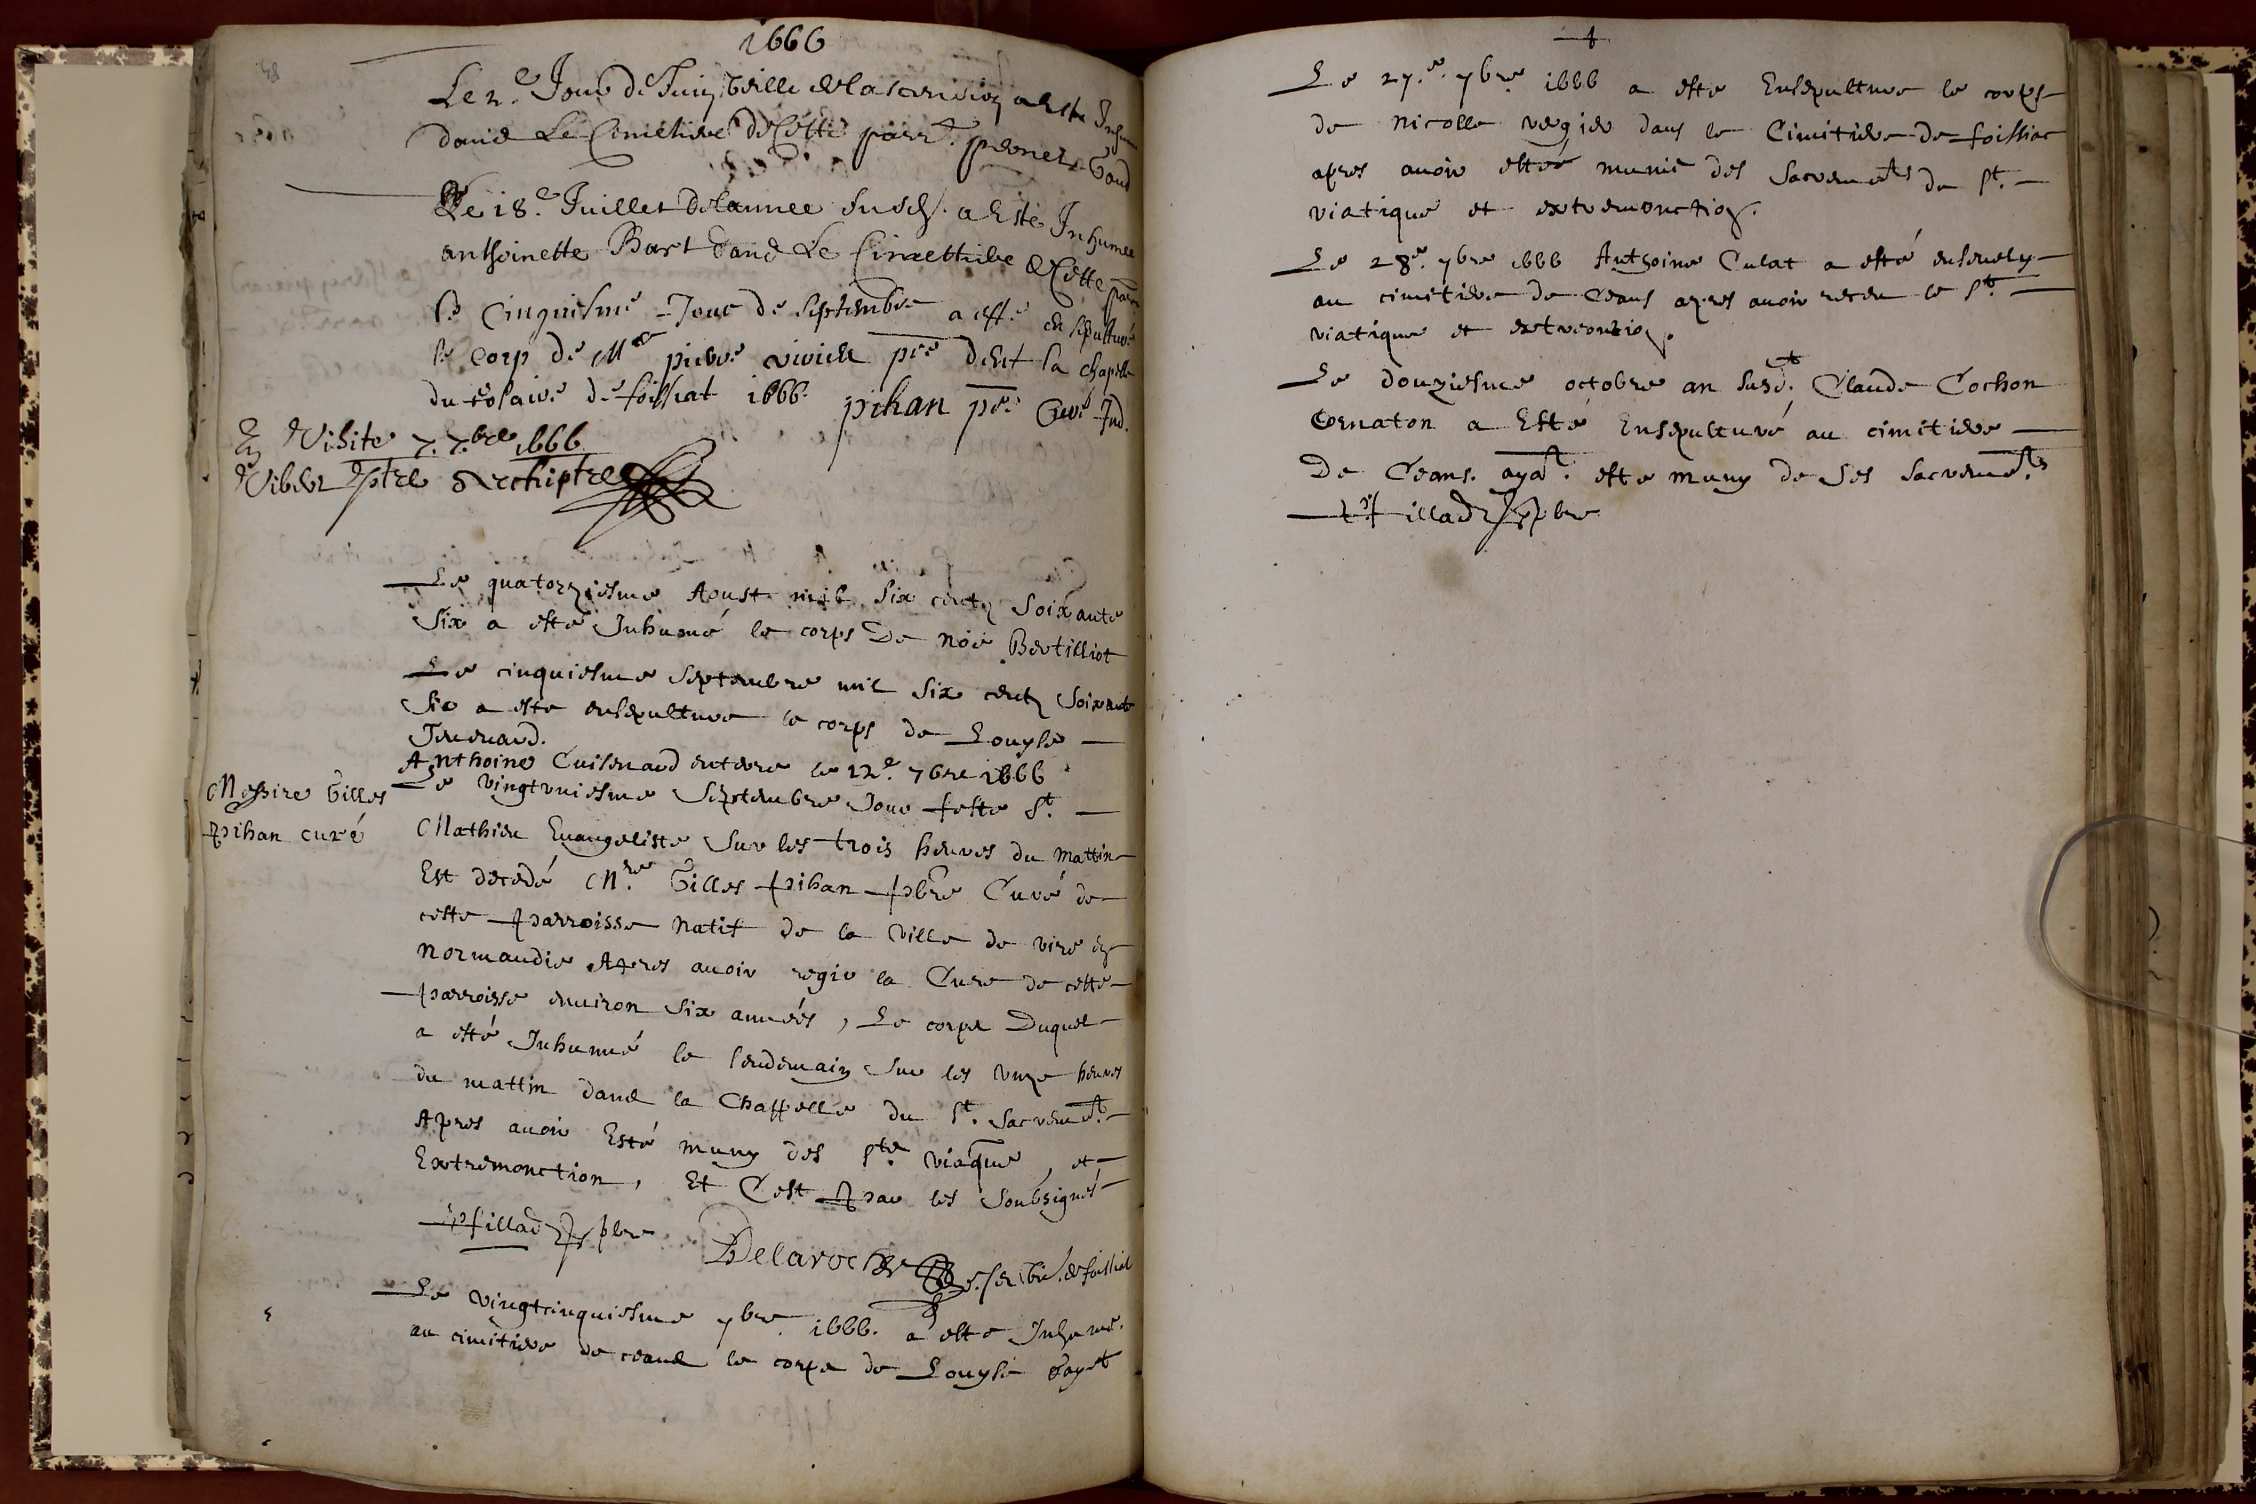 1666
Le 2.e Jour de Juin veille de lascension a este Inhum
dans Le Cimetiere de Cette parr.e pernet
Le 18.e Juillet de lannee susd. a Esté Inhumee
anthoinette Bart dans Le Cimettiere de Cette parr
le Cinquiesme Jour de septembre a esté ensepulturé
le corp de Mre pierre vivier pre dent la chapelle
du rosaire de foissiat 1666. pihan pre Curé Ind.
En Visite 7. 7.bre 1666
Viber ptre Archiptre
Le quatorziesme Aoust mil six centz soixante
six a esté Inhumé le corps De noé Bertilliot
Le cinquiesme septembre mil six centz soixante
six a este ensepulture le corps de Louyse
Anthoine Cuisenard enterre le 12.e 7bre 1666
Messire Gilles
pihan curé
Le vingtuniesme septembre Jour feste St.
Mathieu Euangeliste sur les trois heures du mattin
Est decedé Mre. Gilles pihan pbre Curé de
cette parroisse natif de la ville de vire en
normandie Apres auoir regir la Cure de cette
parroisse enuiron six années, Le corps Duquel
a esté Inhumé le lendemain sur les unze heures
du mattin dans la Chappelle du St. Sacremet.
Apres auoir Esté muny des Sts viaque, et
Extremonction, Et C'est par les soubsignés
pbre Delaroche
Le vingtcinquiesme 7bre. 1666. a esté Inhumé.
au cimitiere de ceans le corps de Louyse
Le 27.e. 7bre 1666 a esté Ensepulture le corps
de nicolle vegier dans le Cimitiere de foissiac
apres auoir estéé munie des Sacremets du St.
viatique et extremonction.
Le 28e. 7bre 1666 Anthoine Culat a esté enseuely
au cimitiere de Ceans apres auoir receu le St.
viatique et extreontion.
Le douziesme octobre an susd.t Claude Cochon
Cornaton a Esté Ensepulturé au cimitiere
De Ceans. ayat. esté muny de ses sacremets.
pbre